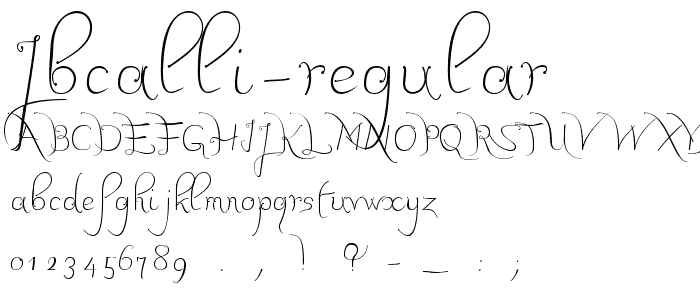 Jbcalli-regular
ABCDEFGHIJKLMNOPQRSTUVWXY
abcdefghijklmnopqrstuvwxyz
0123456789 . , ! ? - _ : ;